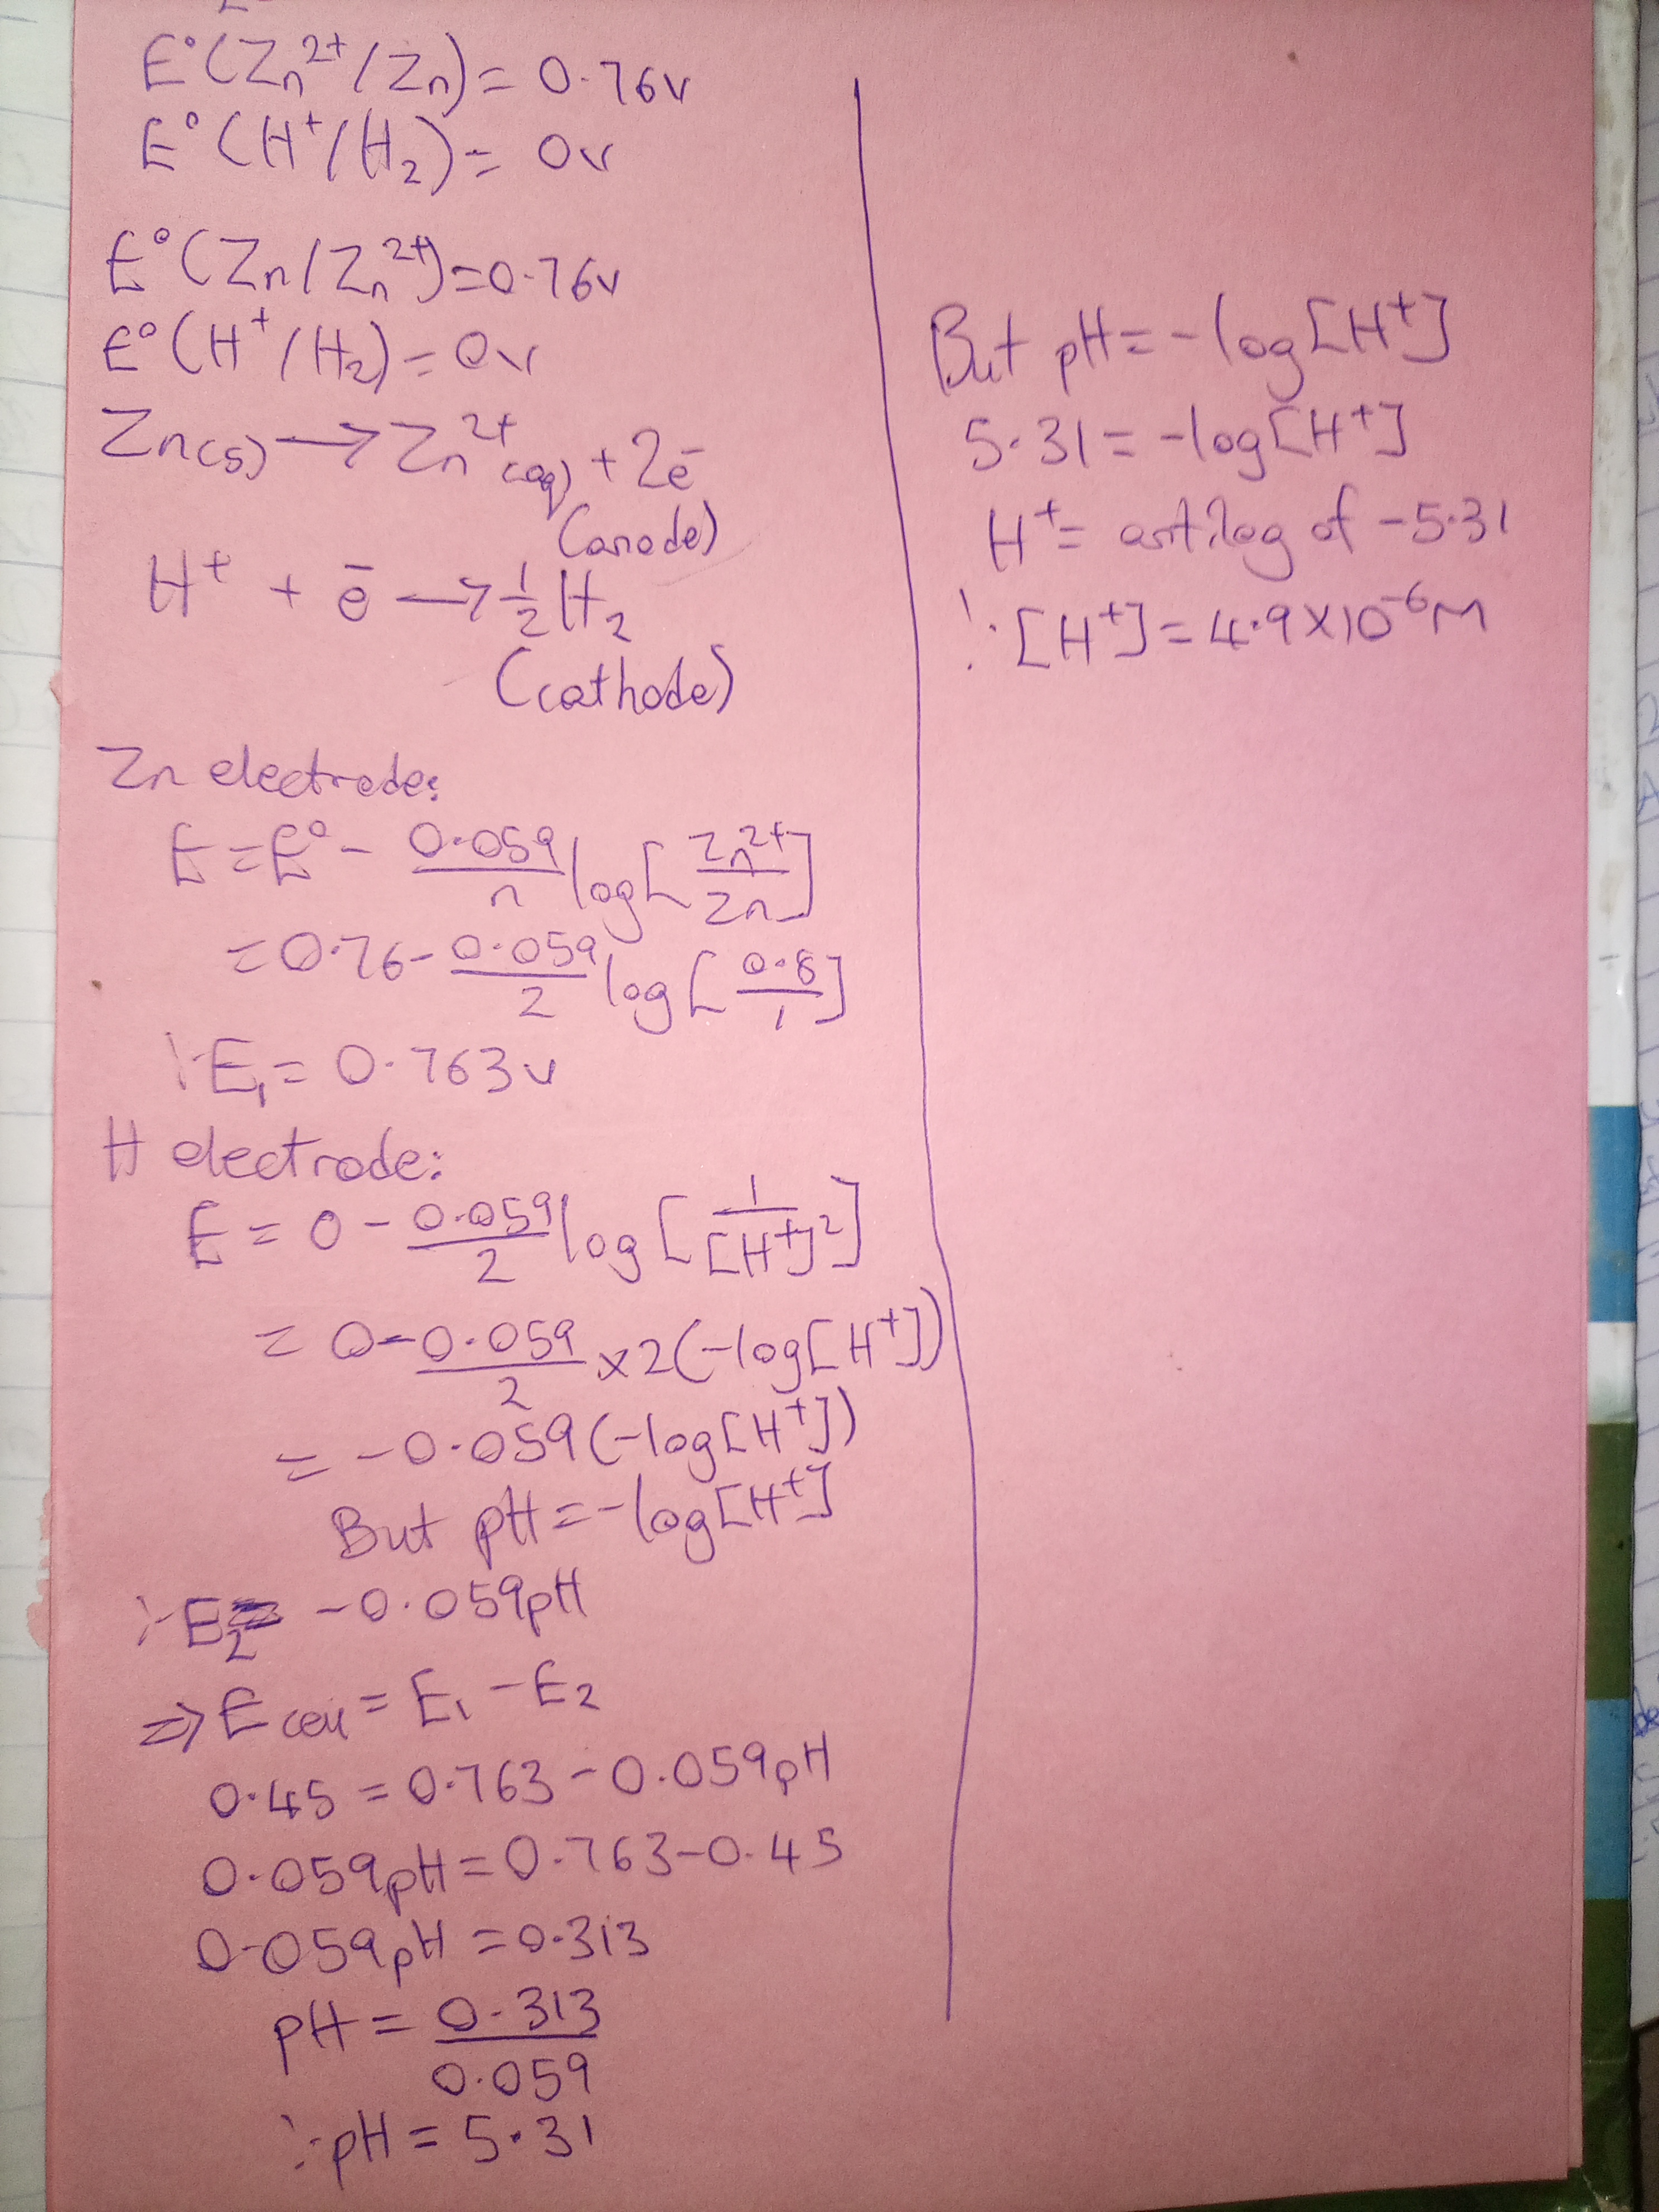 E°(Zn²⁺/Zn) = 0.76v
E°(H⁺/H₂) = 0v
E°(Zn/Zn²⁺) = 0.76v
E°(H⁺/H₂) = 0v
Zn(s) → Zn²⁺(aq) + 2ē
(anode)
H⁺ + ē → ½H₂
(cathode)
Zn electrode:
E = E° - 0.059/n log[Zn²⁺/Zn]
= 0.76 - 0.059/2 log[0.8/1]
∴ E₁ = 0.763v
H electrode:
E = 0 - 0.059/2 log[1/[H⁺]²]
= 0 - 0.059/2 × 2(-log[H⁺])
= -0.059(-log[H⁺])
But pH = -log[H⁺]
∴ E₂ = -0.059pH
⇒ E cell = E₁ - E₂
0.45 = 0.763 - 0.059pH
0.059pH = 0.763 - 0.45
0.059pH = 0.313
pH = 0.313/0.059
∴ pH = 5.31
But pH = -log[H⁺]
5.31 = -log[H⁺]
H⁺ = antilog of -5.31
∴ [H⁺] = 4.9×10⁻⁶M